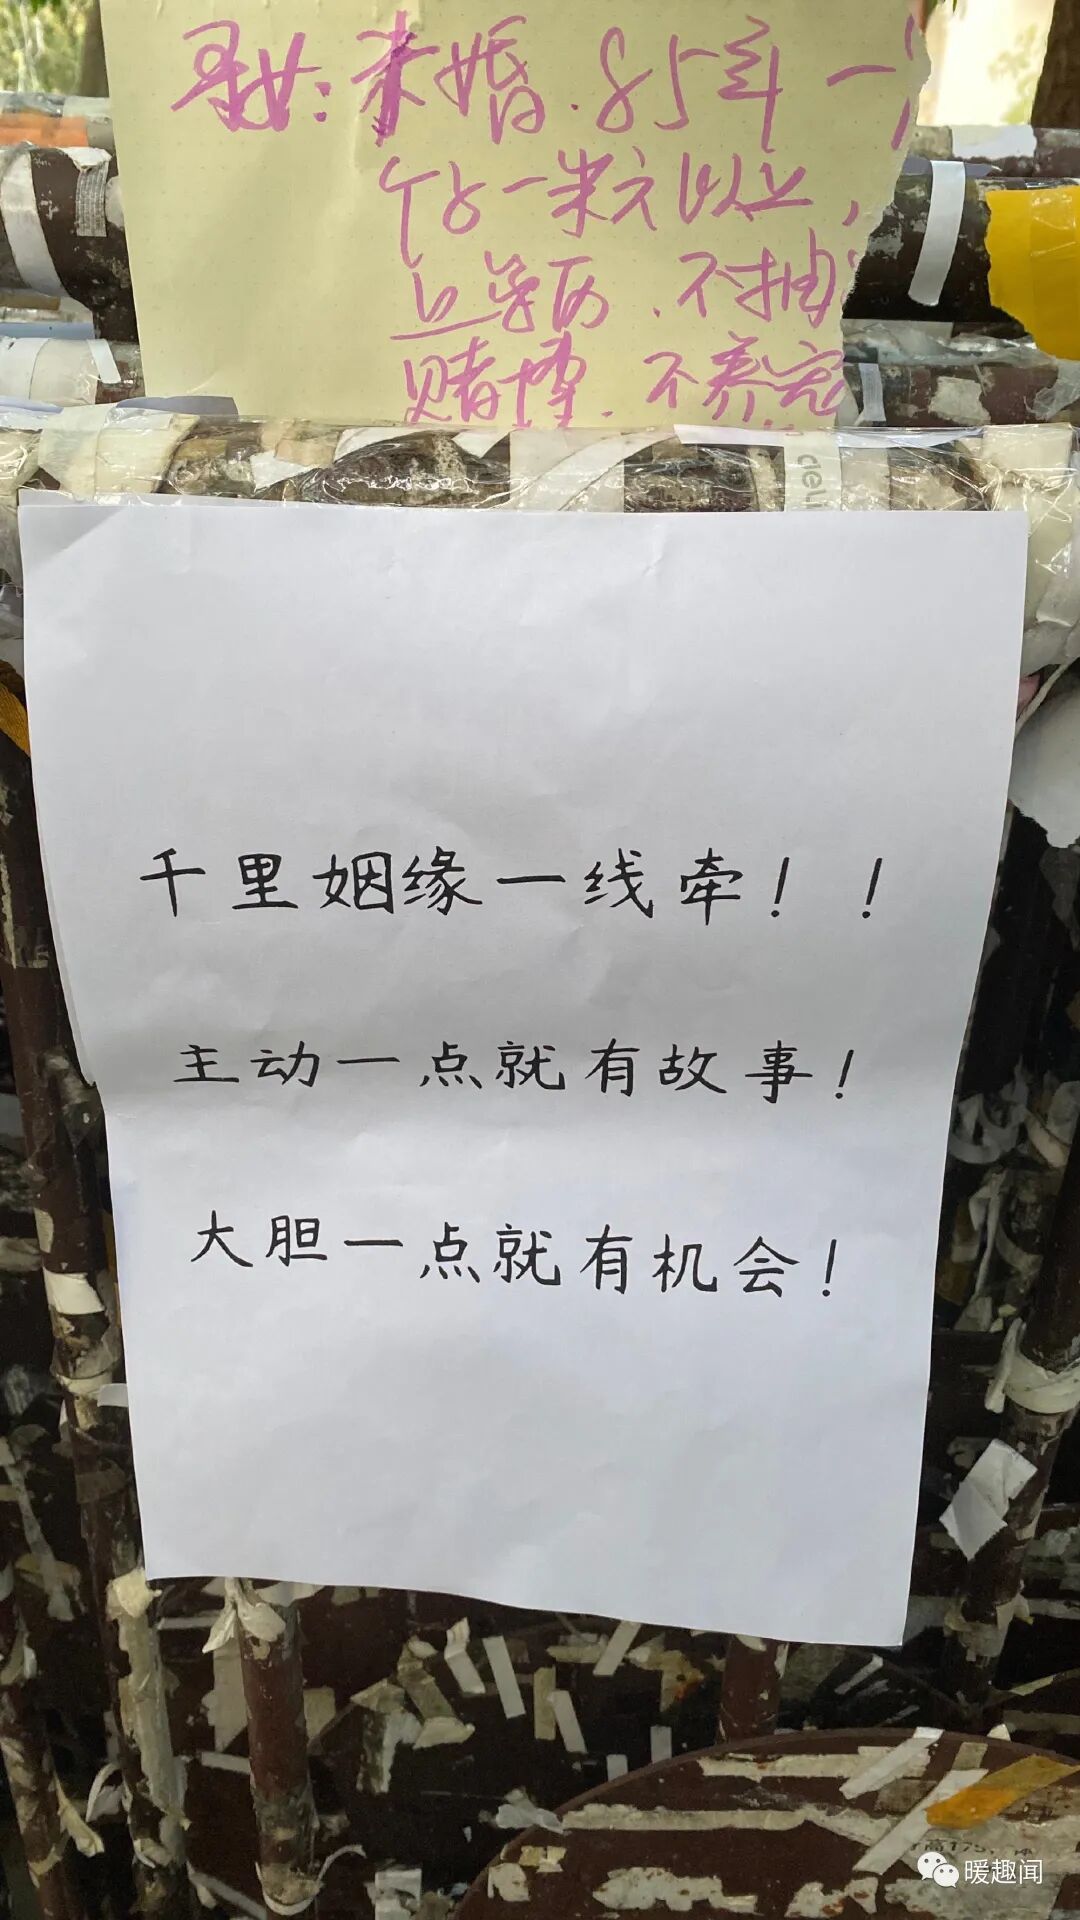 寻女：未婚.85年一
个子一米六以上，
上学历.不抽
赌博.不养宠
deli
千里姻缘一线牵！！
主动一点就有故事！
大胆一点就有机会！
高175
暖趣闻